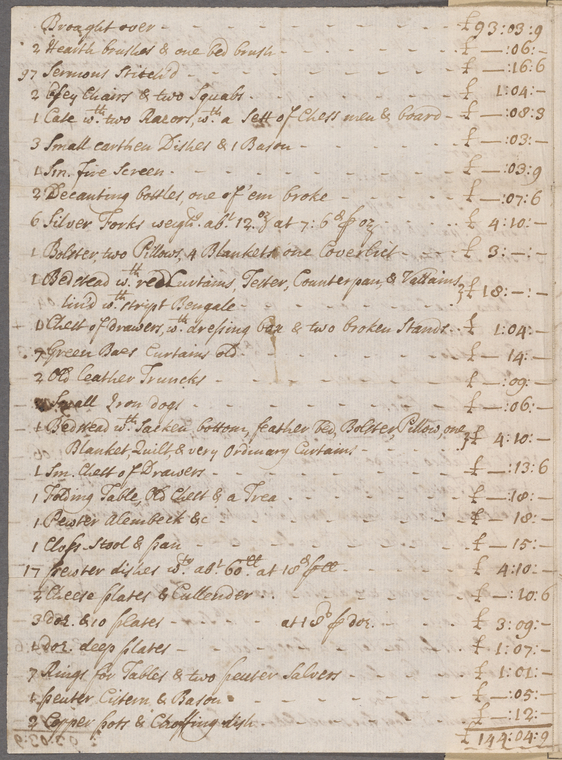 Brought over - £93:03:9
2 Hearth brushes & one bed brush - £—:06:—
97 Sermons Stitch'd £—:16:6
2 Easy Chairs & two Squabs £ 1:04:—
1 Case wth two Razors, wth a Sett of Chess men & board £—:08:3
3 Small earthen Dishes & 1 Bason £—:03:—
1 Sm. fire Screen £—:03:9
2 Decanting bottles one of 'em broke £—:07:6
6 Silver Forks weigt. abt 12 oz at 7:6d p oz £ 4:10:—
1 Bolster, two Pillows, 4 Blankets one Coverlid £ 3:—:—
1 Bedstead wth red Curtains, Tester, Counterpan, & Vallains
lin'd wth stript Bengale } £18:—:—
1 Chest of Drawers, wth dressing box & two broken Stands £ 1:04—
7 Green Baes Curtains old £— 14:—
2 Old leather Truncks £—:09:—
Small Iron dogs £—:06:—
1 Bedstead wth Sacken bottom, feather bed, Bolster, Pillow, one
Blanket Quilt & very Ordinary Curtains } £ 4:10:—
1 Sm. Chest of Drawers £—:13:6
1 Folding Table, Old Chest & a Trea £—:18:—
1 Pewter Alembeck &c £—18:—
1 Closs Stool & pan £—15:—
17 pewter dishes wt. abt 60 lt. at 18d p lt £ 4:10:—
2 Cheese plates & Cullender £—:10:6
3 doz. & 10 plates at 18s p doz. £ 3:09:—
1 doz. deep plates £ 1:07:—
7 Rings for Tables & two peuter Salvers £ 1:01:—
1 peuter Cistern, & Bason £—:05:—
2 Copper pots & Choffing dish £—:12:—
£144:04:9